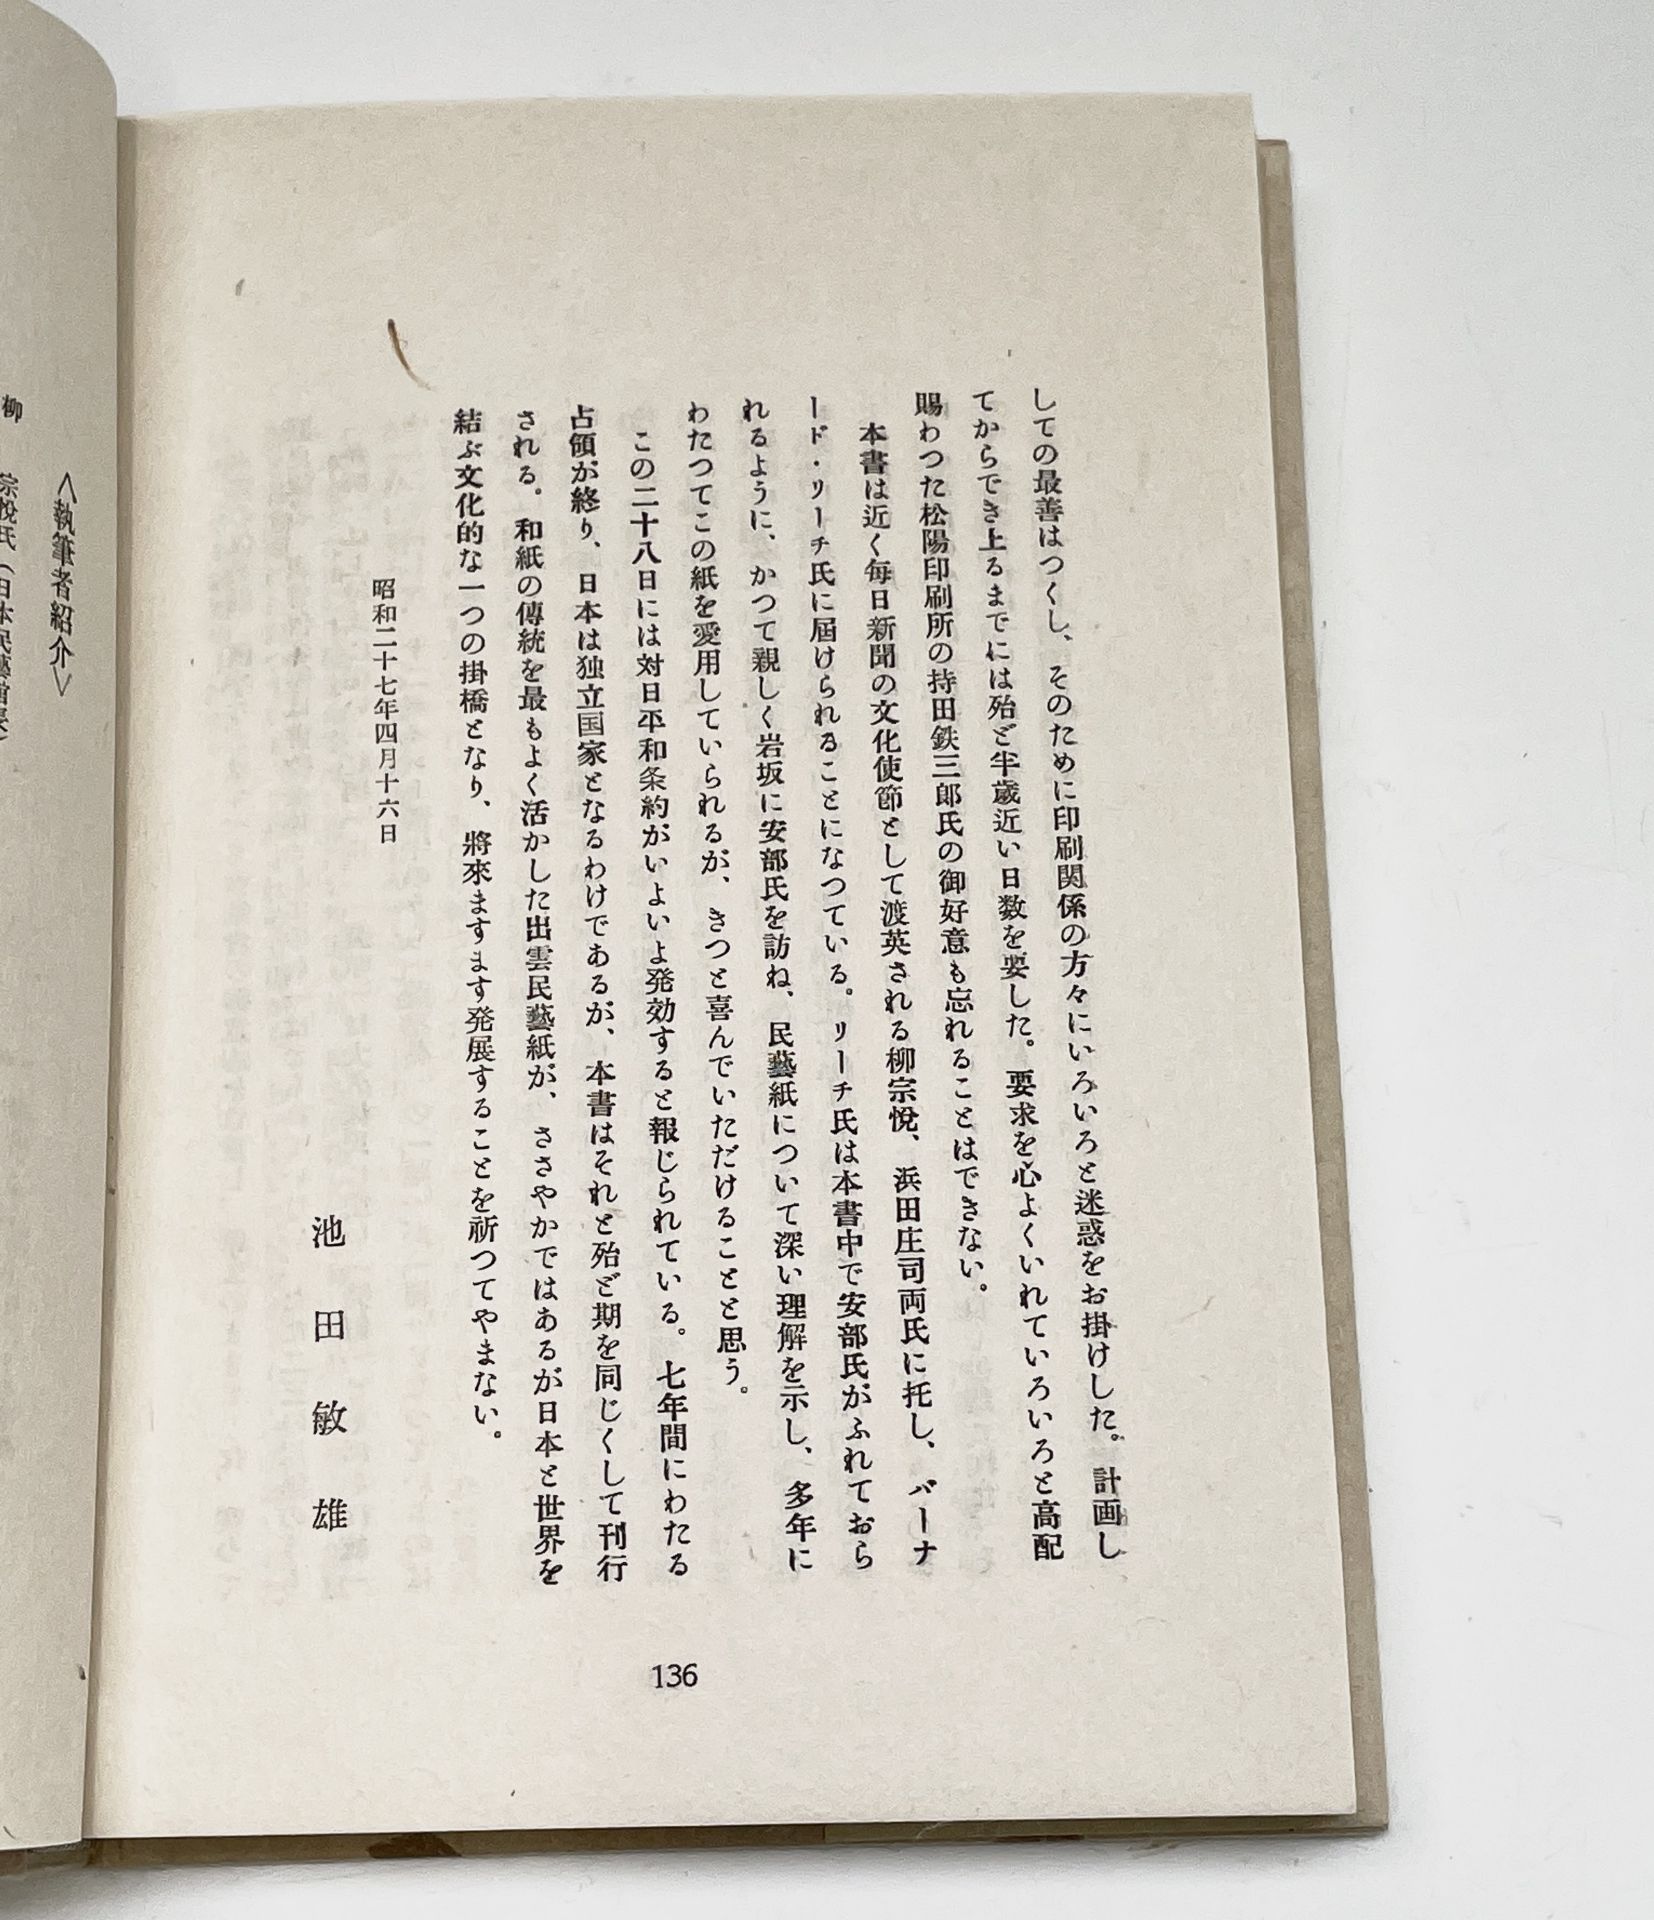 しての最善はつくし、そのために印刷関係の方々にいろいろと迷惑をお掛けした。計画し
てからでき上るまでには殆ど半歳近い日数を要した。要求を心よくいれていろいろと高配
賜わつた松陽印刷所の持田鉄三郎氏の御好意も忘れることはできない。
本書は近く毎日新聞の文化使節として渡英される柳宗悅、浜田庄司両氏に托し、バーナ
ード・リーチ氏に屆けられることになつている。リーチ氏は本書中で安部氏がふれておら
れるように、かつて親しく岩坂に安部氏を訪ね、民藝紙について深い理解を示し、多年に
わたつてこの紙を愛用していられるが、きつと喜んでいただけることと思う。
この二十八日には対日平和条約がいよいよ発効すると報じられている。七年間にわたる
占領が終り、日本は独立国家となるわけであるが、本書はそれと殆ど期を同じくして刊行
される。和紙の傳統を最もよく活かした出雲民藝紙が、ささやかではあるが日本と世界を
結ぶ文化的な一つの掛橋となり、將來ますます発展することを祈つてやまない。
昭和二十七年四月十六日
池田敏雄
136
〈執筆者紹介〉
柳 宗悅氏（日本民藝館長）